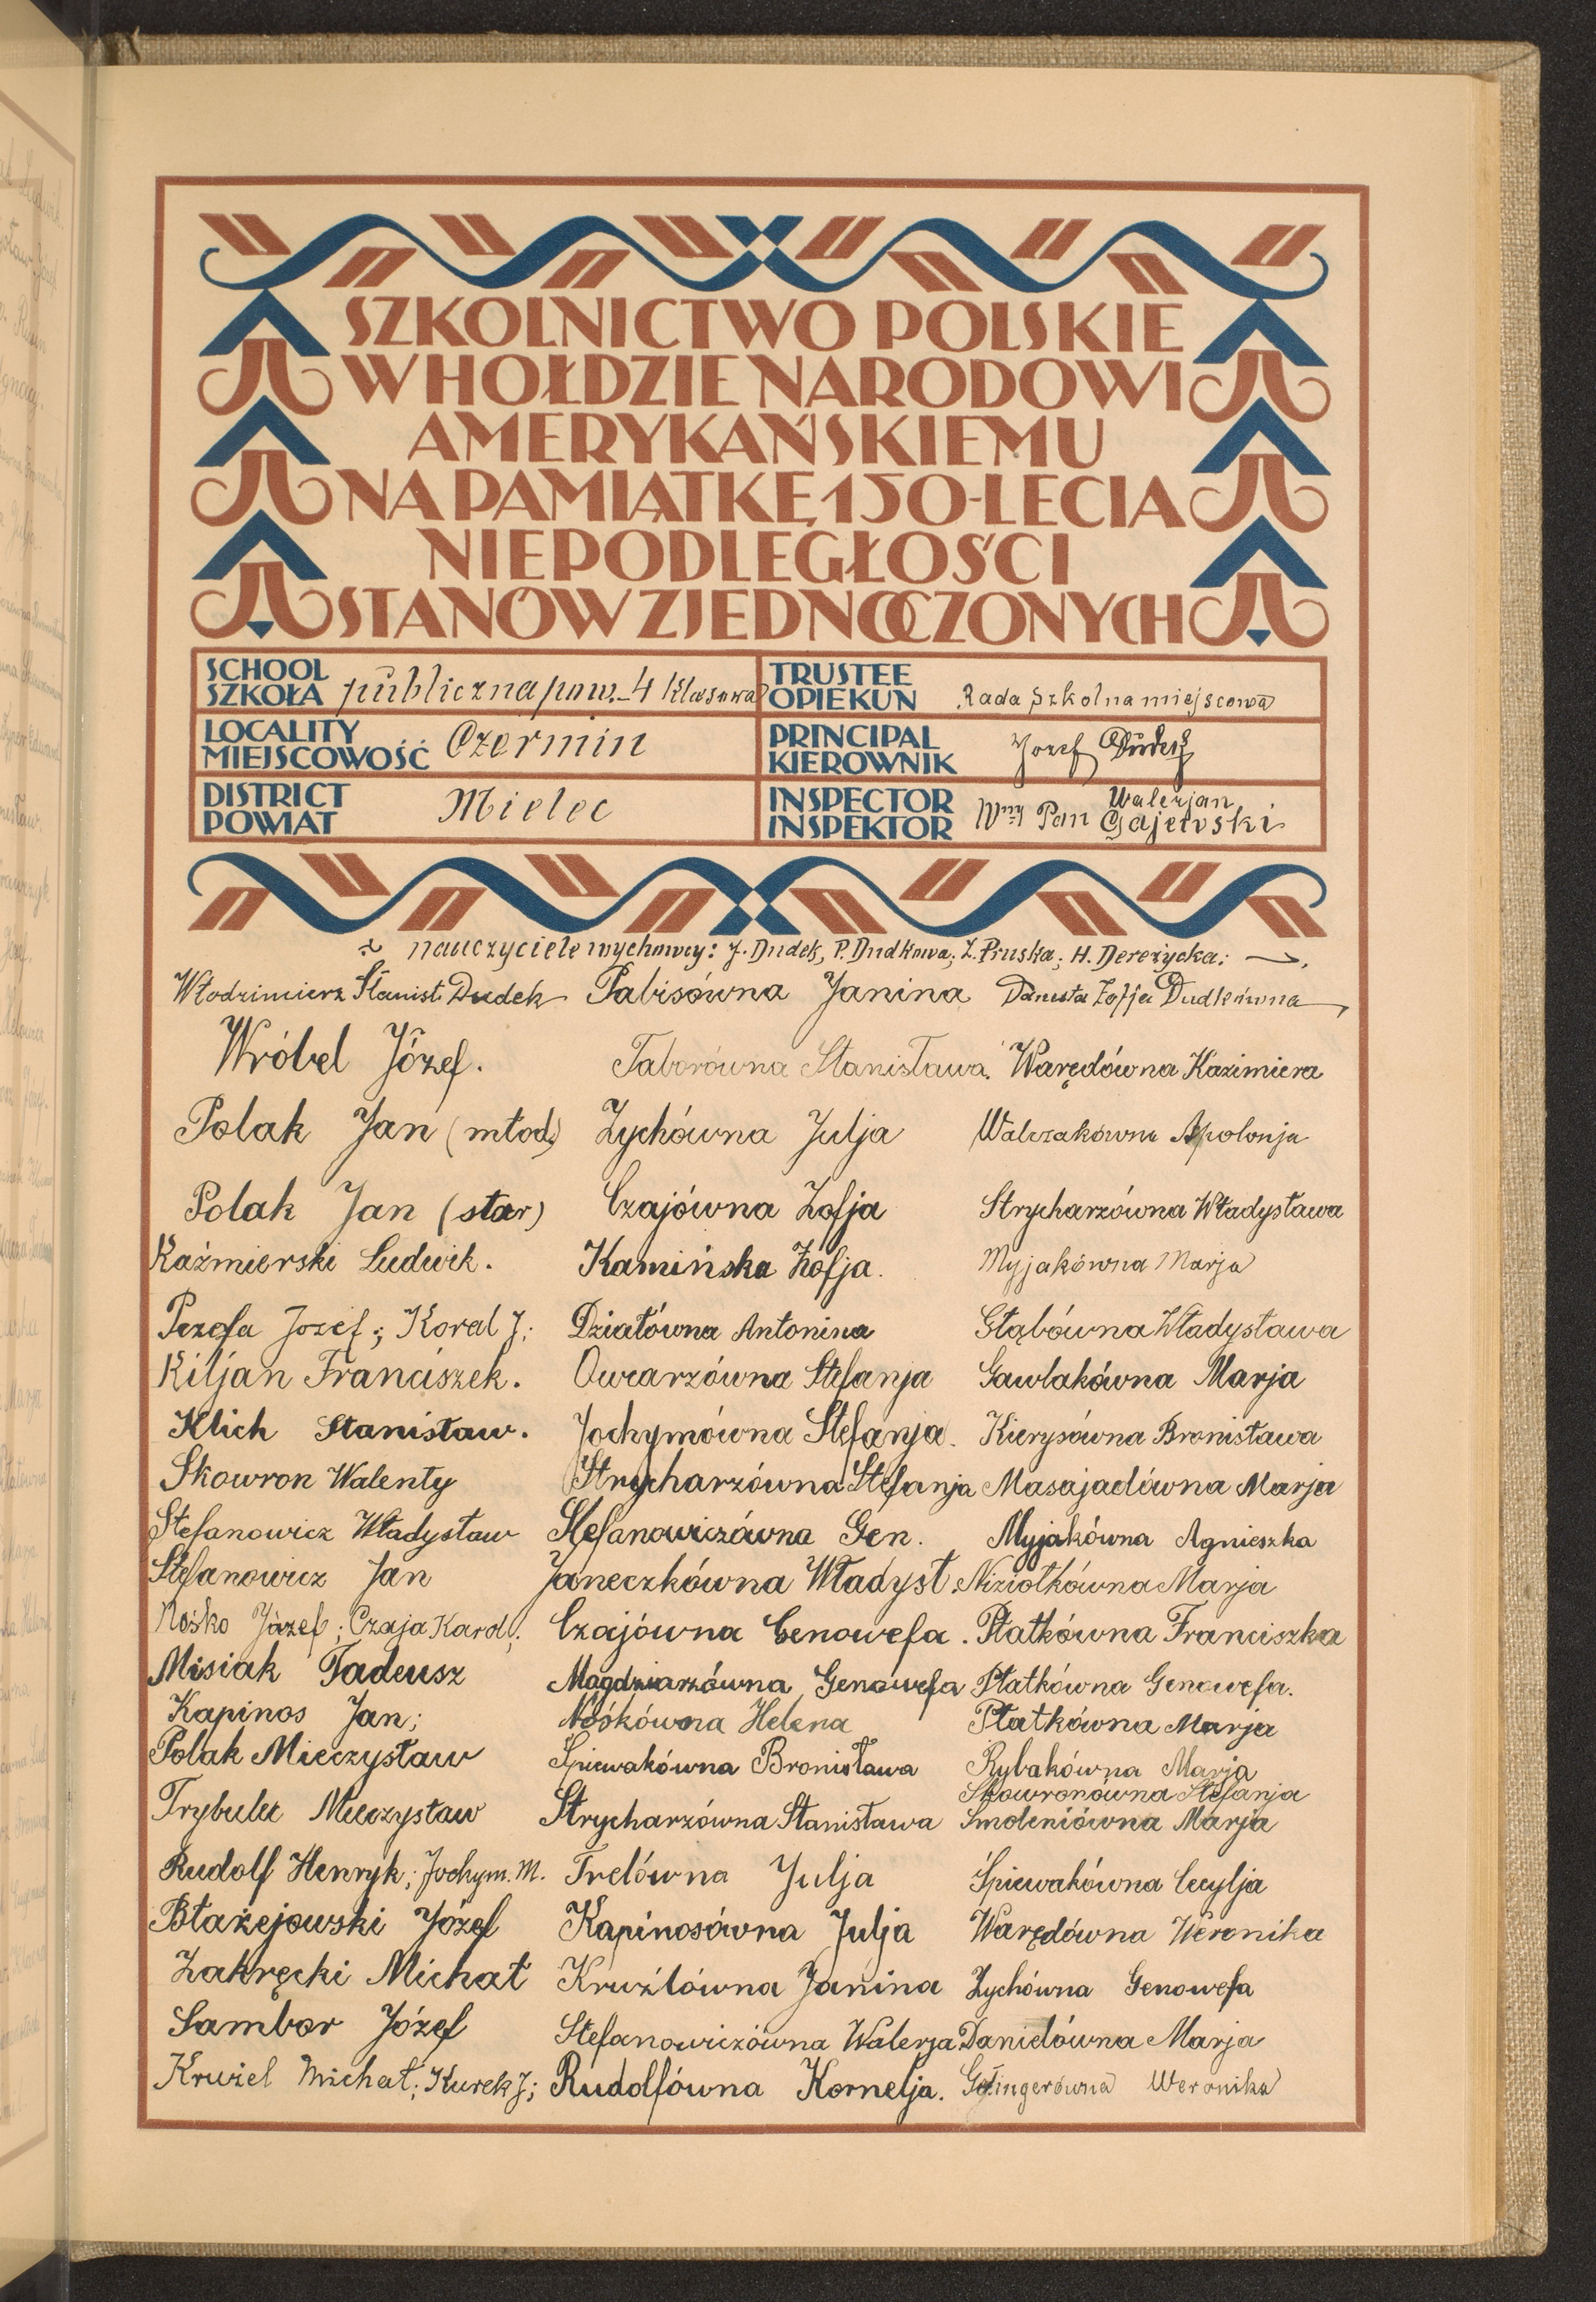 SZKOLNICTWO POLSKIE
W HOŁDZIE NARODOWI
AMERYKAŃSKIEMU
NA PAMIĄTKĘ 150-LECIA
NIEPODLEGŁOŚCI
STANÓW ZJEDNOCZONYCH
SCHOOL
SZKOŁA publiczna pow. 4 klasowa
TRUSTEE
OPIEKUN Rada Szkolna miejscowa
LOCALITY
MIEJSCOWOŚĆ Czermin
PRINCIPAL
KIEROWNIK Józef Dudek
DISTRICT
POWIAT Mielec
INSPECTOR
INSPEKTOR Wny Pan Walerjan Gajewski
nauczyciele wychowcy: J. Dudek, P. Dudkowa; Z. Pruska; H. Dereżycka;
Włodzimierz Stanist. Dudek Pabisówna Janina Danuta Zofja Dudkówna
Wróbel Józef. Taborówna Stanisława. Warędówna Kazimiera
Polak Jan (młod.) Zychówna Julja Walczakówna Apolonja
Polak Jan (star) Czajówna Zofja Strycharzówna Władysława
Kaźmierski Ludwik. Kamińska Zofja. Myjakówna Marja
Pezda Józef; Koral J; Działówna Antonina Głąbówna Władysława
Kiljan Franciszek. Owcarzówna Stefanja Gawlakówna Marja
Klich Stanisław. Jochymówna Stefanja. Kierysówna Bronisława
Skowron Walenty Strycharzówna Stefanja Masajadówna Marja
Stefanowicz Władysław Stefanowiczówna Gen. Myjakówna Agnieszka
Stefanowicz Jan Janeczkówna Władyst. Niziołkówna Marja
Nośko Józef; Czaja Karol; Czajówna Genowefa. Płatkówna Franciszka
Misiak Tadeusz Magdziarzówna Genowefa Płatkówna Genowefa.
Kapinos Jan; Nośkówna Helena Płatkówna Marja
Polak Mieczysław Śpiewakówna Bronisława Rybakówna Marja
Skowronówna Stefanja
Trybulec Mieczysław Strycharzówna Stanisława Smoleniówna Marja
Rudolf Henryk; Jochym. M. Trelówna Julja Śpiewakówna Cecylja
Błażejowski Józef Kapinosówna Julja Warędówna Weronika
Zakręcki Michał Kruźlówna Janina Zychówna Genowefa
Sambor Józef Stefanowiczówna Walerja Danielówna Marja
Krużel Michał; Kurek J; Rudolfówna Kornelja. Weronika